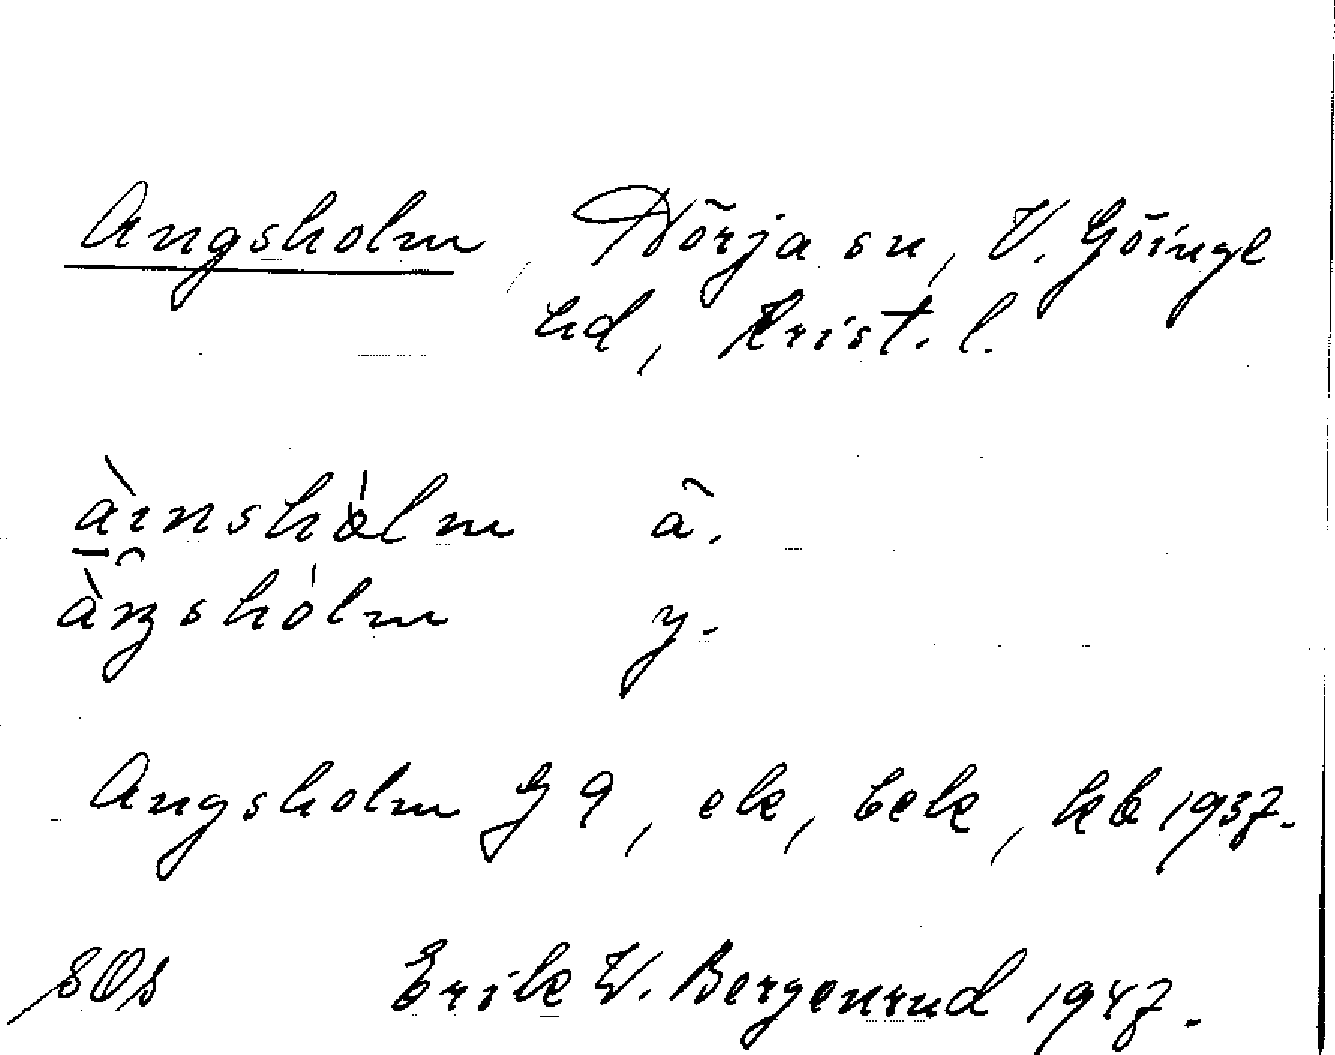 Angsholm, Nörja sn, V. Göinge
hd, Krist. l.
àınshòlm ä.
àŋshòlm y.
Angsholm G 9, ek, bek, kb 1937.
SOS Erik W. Bergenrud 1947.